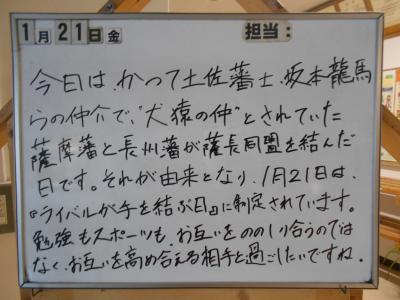 1月21日金 担当:
今日は、かつて土佐藩士、坂本龍馬
らの仲介で、"犬猿の仲"とされていた
薩摩藩と長州藩が薩長同盟を結んだ
日です。それが由来となり、1月21日は、
『ライバルが手を結ぶ日』に制定されています。
勉強もスポーツも、お互いをののしり合うのでは
なく、お互いを高め合える相手と過ごしたいですね。